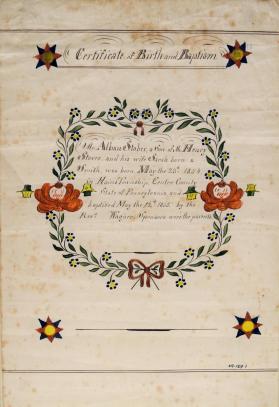 Certificate of Birth and Baptism
Alban Stover, a Son of Mr Henry
Stover and his wife Sarah born a
Smith, was born May the 25th 1854
In Haines Township, Center County
State of Pennsylvania, and
baptised May the 12th 1855 by the
Revd Wagner, Sponsors were the parents